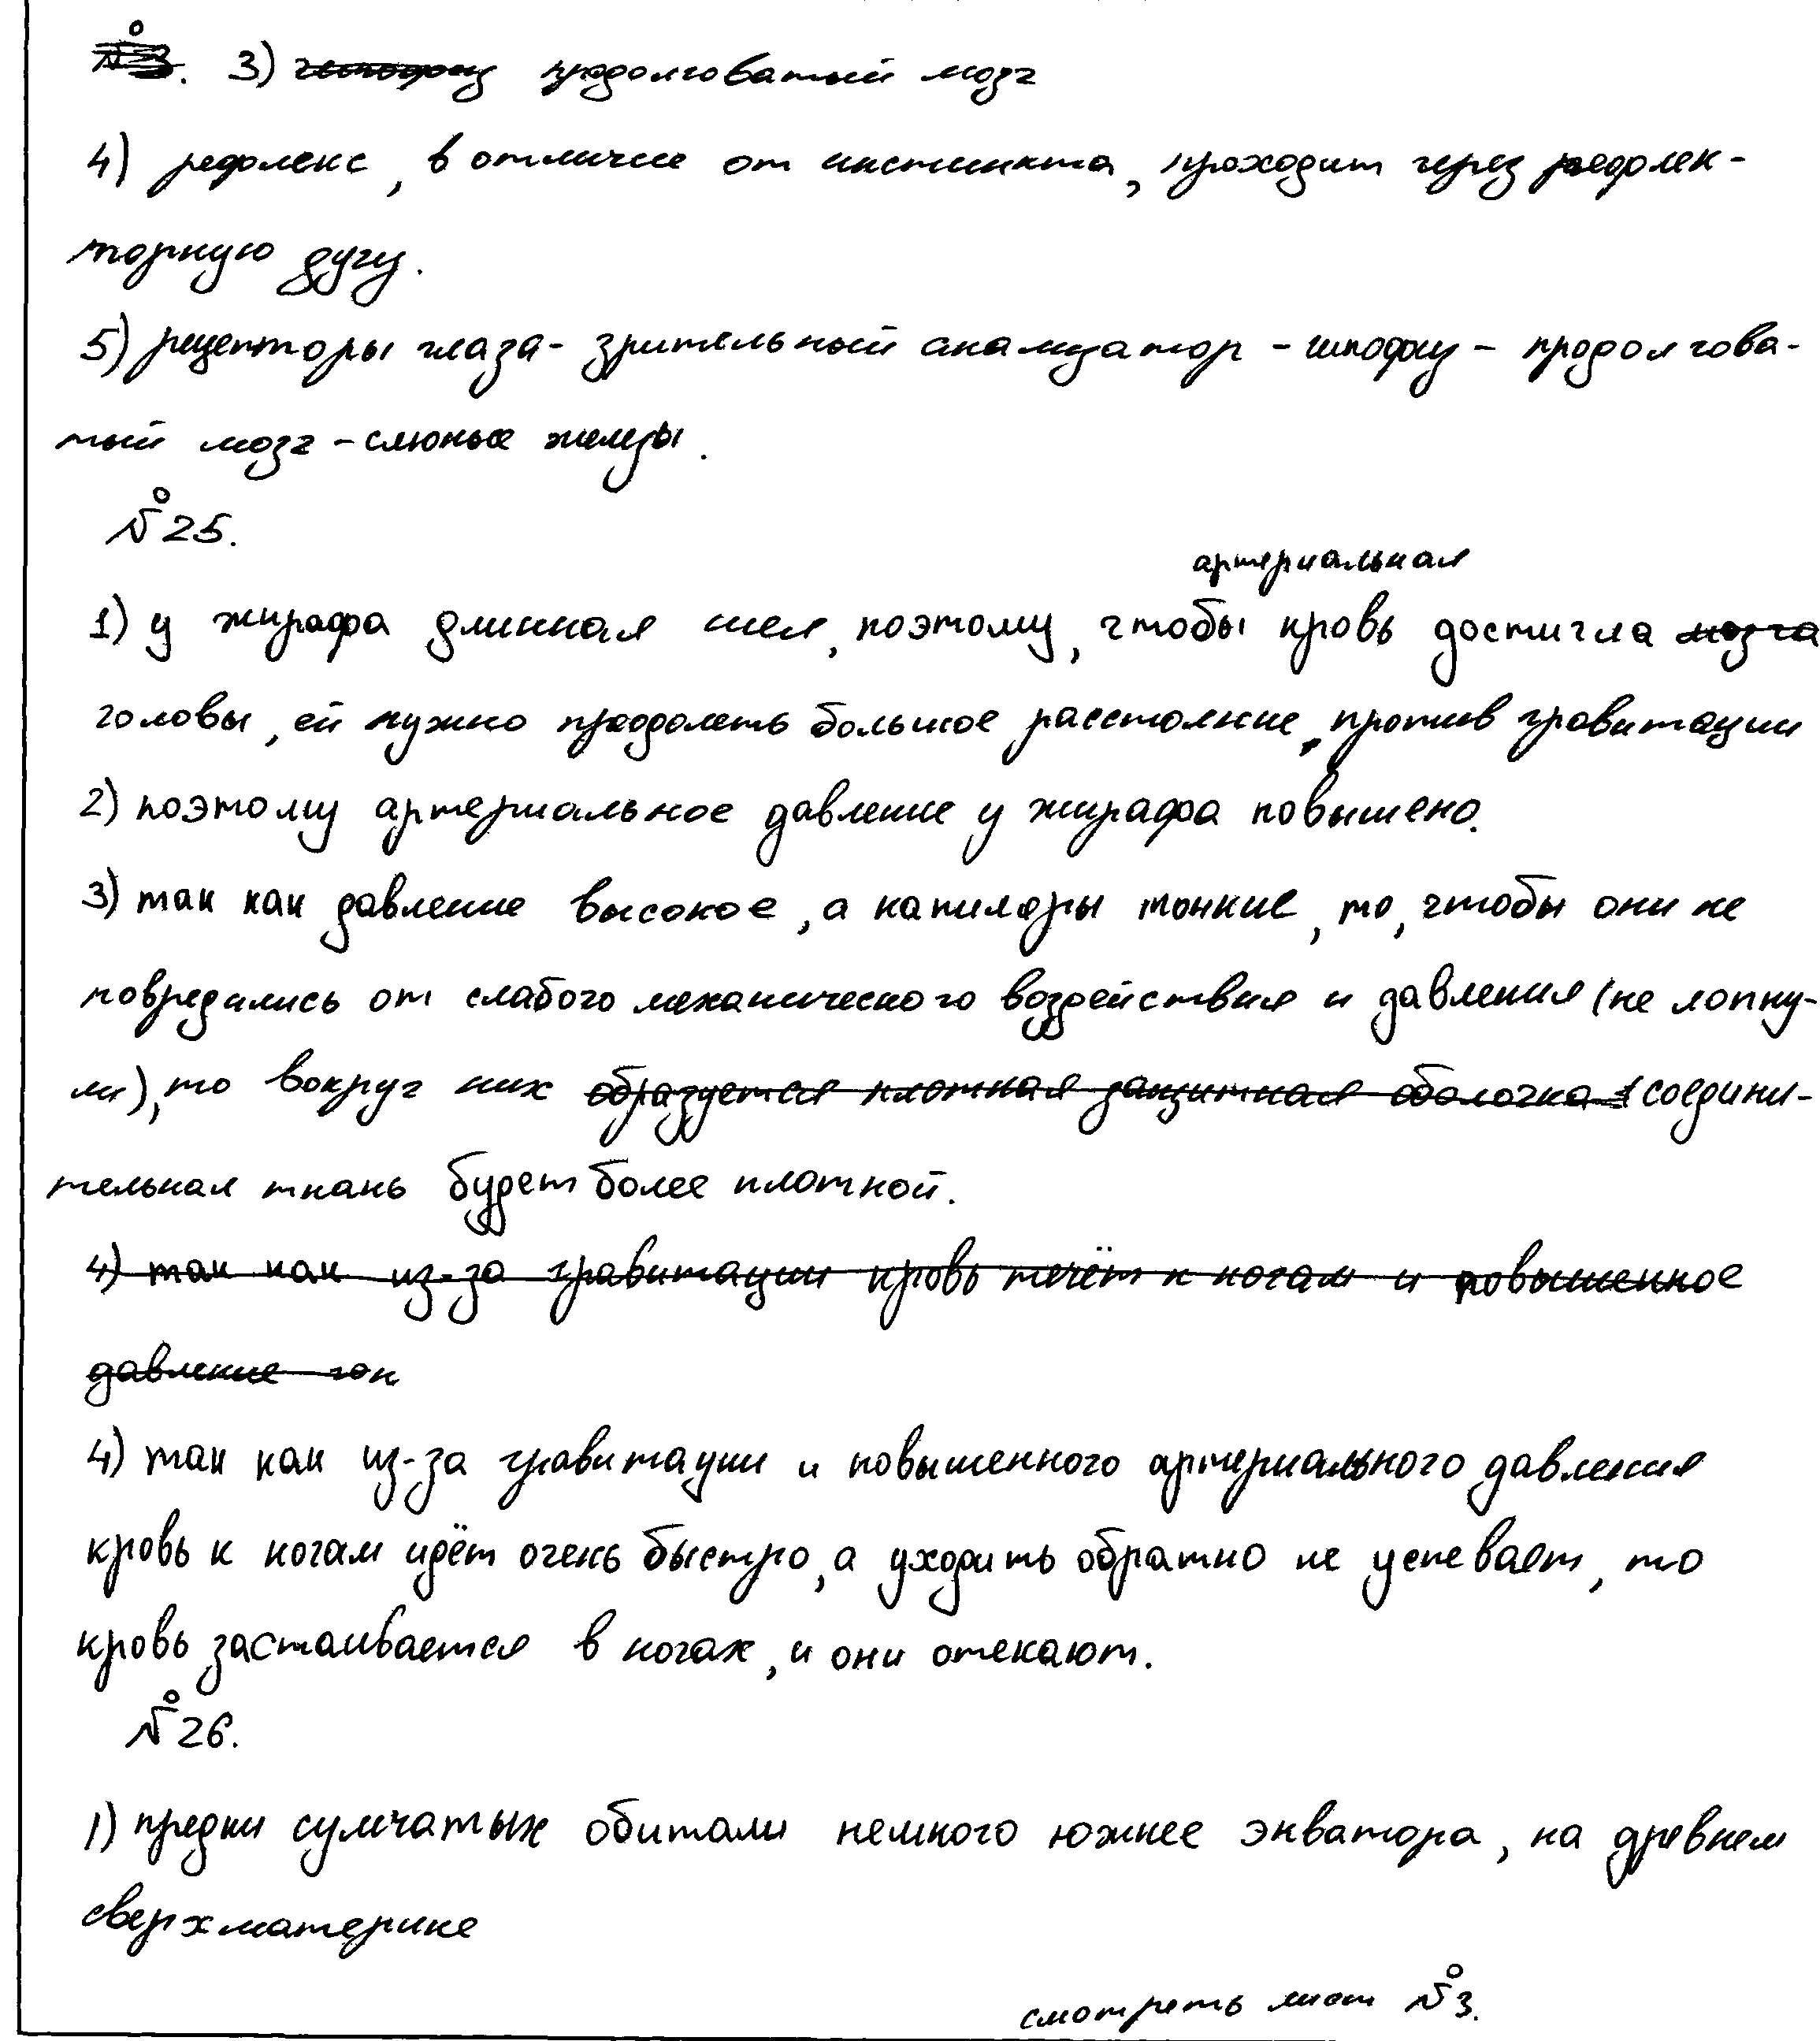 №3. 3) гипофиз продолговатый мозг
4) рефлекс, в отличие от инстинкта, проходит через рефлек-
торную дугу.
5) рецепторы глаза - зрительный анализатор - гипофиз - продолгова-
тый мозг - слюные железы.
№25.
артериальная
1) у жирафа длинная шея, поэтому, чтобы кровь достигла мозга
головы, ей нужно преодолеть большое расстояние, против гравитации
2) поэтому артериальное давление у жирафа повышено.
3) так как давление высокое, а капиляры тонкие, то, чтобы они не
повредились от слабого механического воздействия и давления (не лопну-
ли), то вокруг них образуется плотная защитная оболочка (соедини-
тельная ткань будет более плотной.
4) так как из-за гравитации кровь течёт к ногам и повышенное
давление
4) так как из-за гравитации и повышенного артериального давления
кровь к ногам идёт очень быстро, а уходить обратно не успевает, то
кровь застаивается в ногах, и они отекают.
№26.
1) предки сумчатых обитали немного южнее экватора, на древнем
сверхматерике
смотреть лист №3.